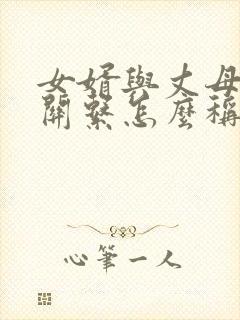 女婿與丈母
關繫怎麼稱
心筆一人